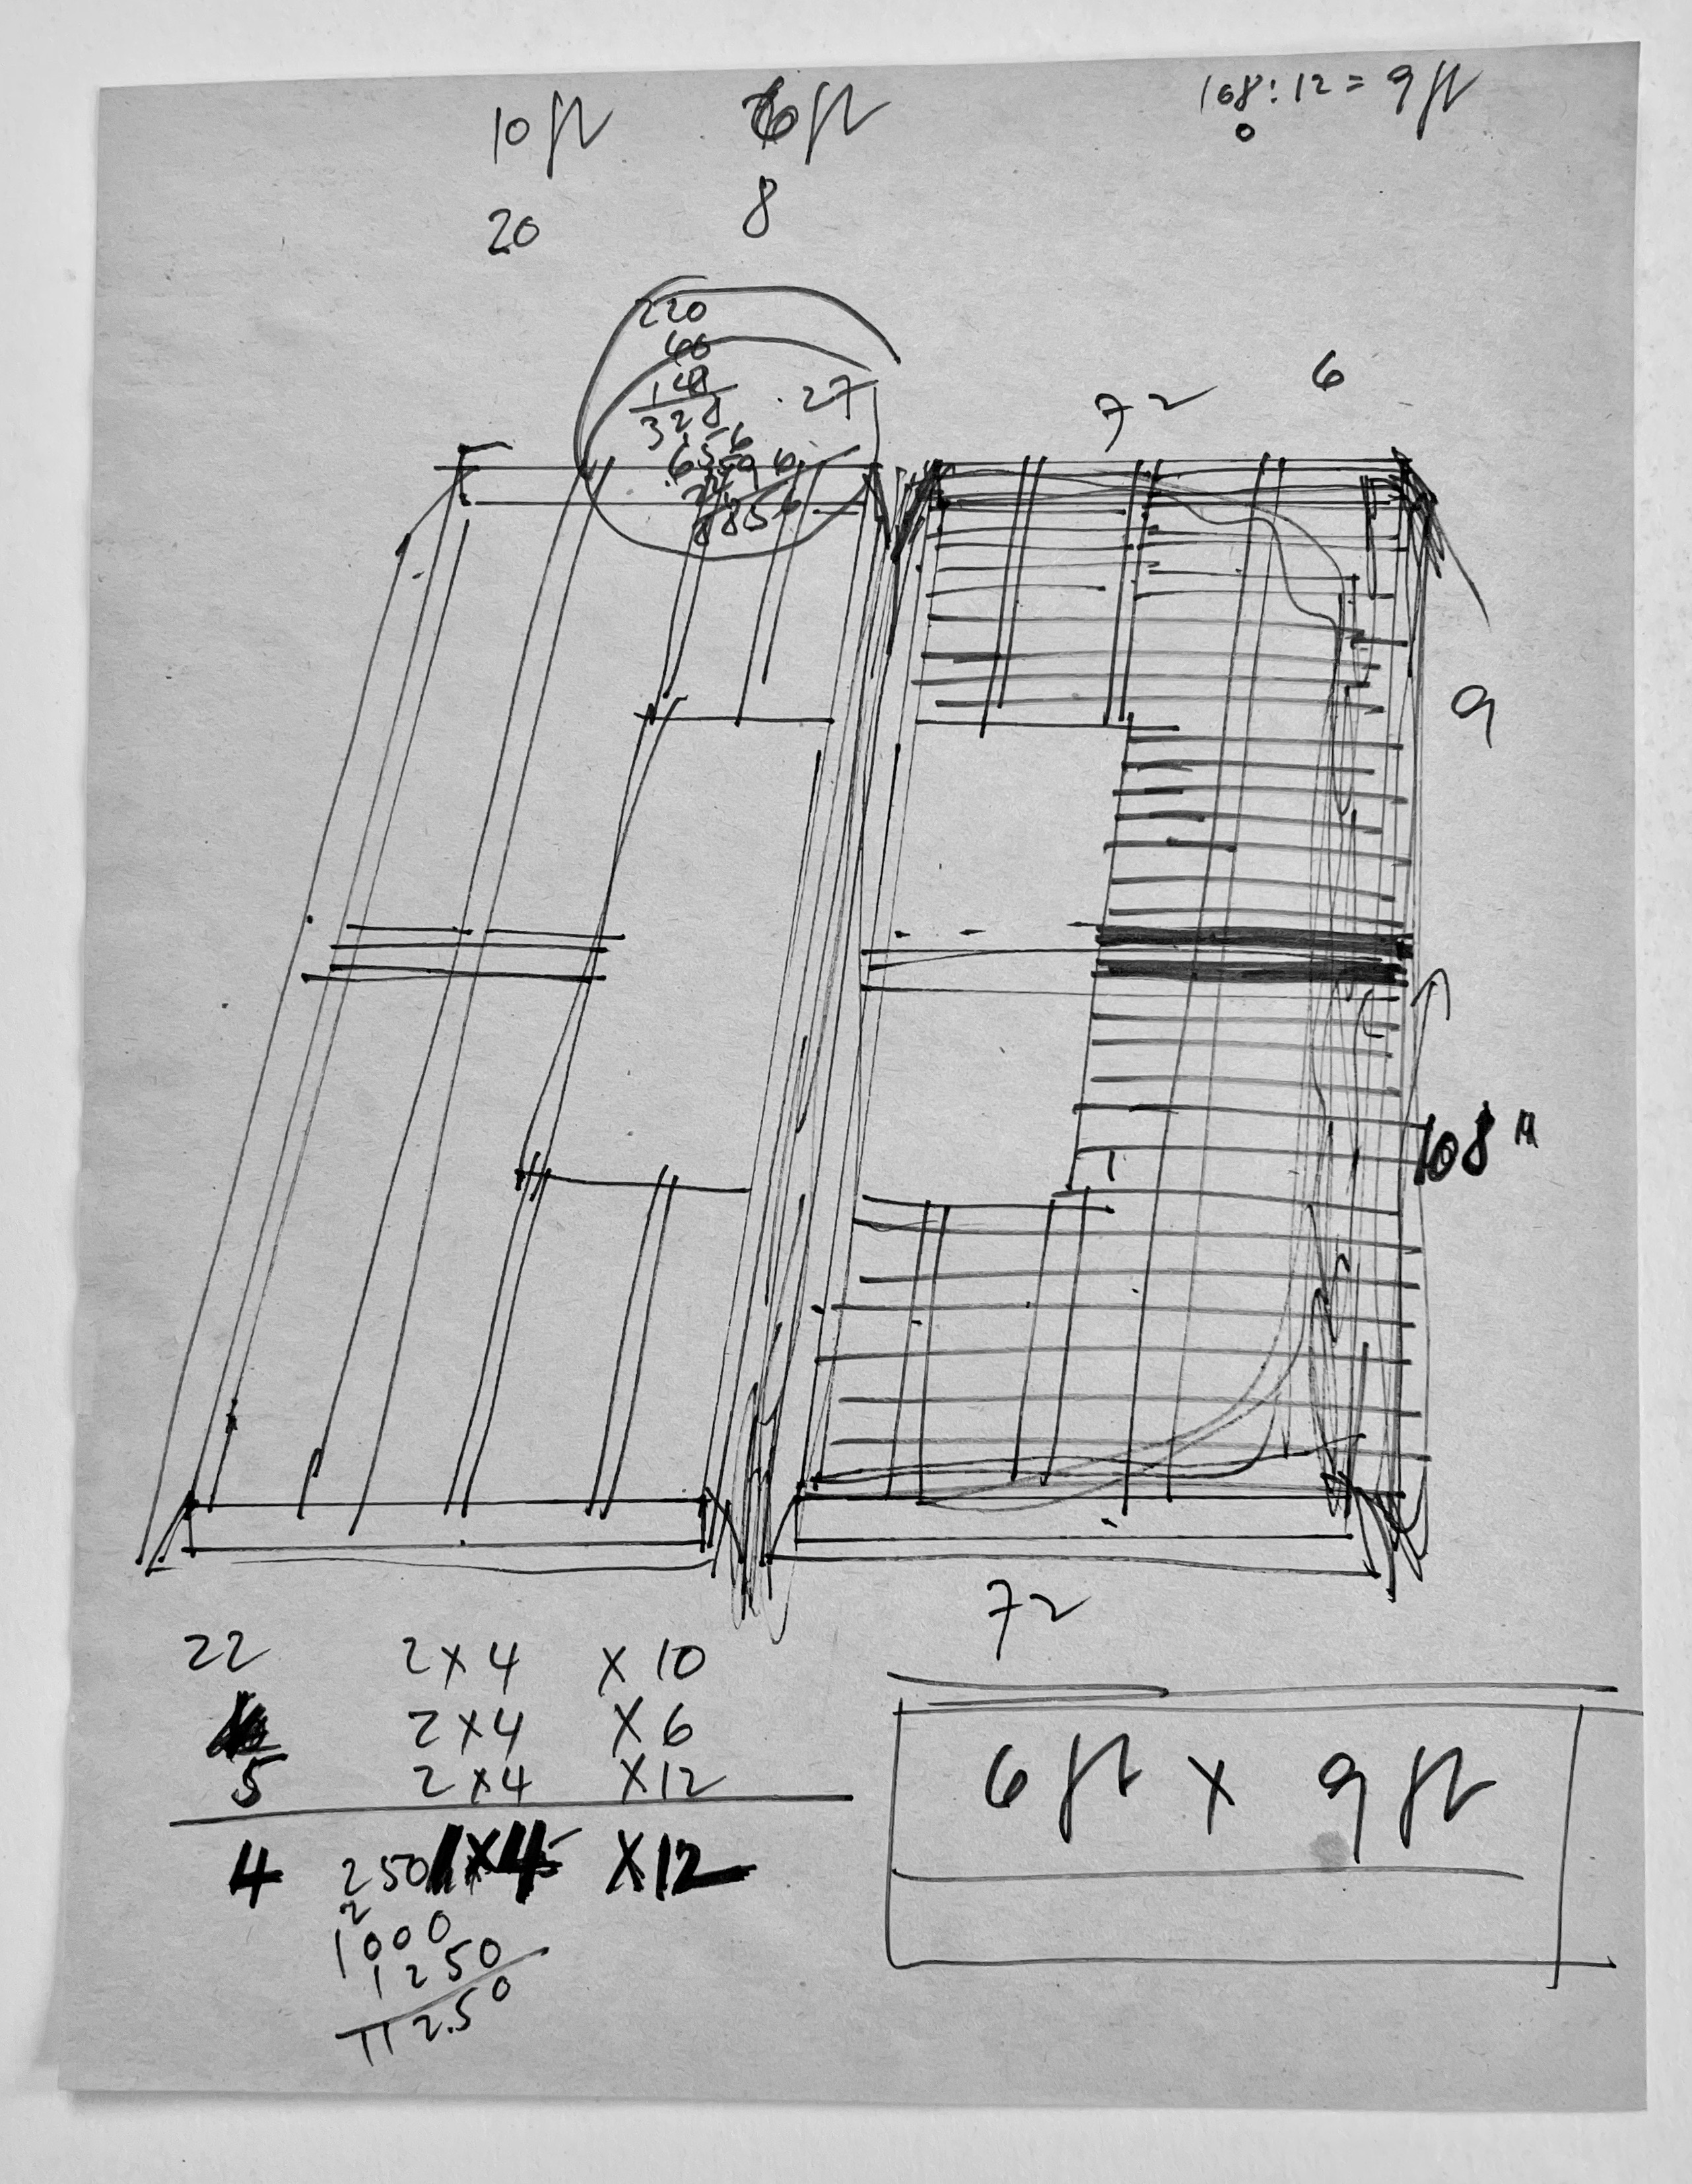 10 ft 6 ft 108 : 12 = 9 ft
0
20 8
220
60
328
.27
656
72 6
9
108"
72
22 2 x 4 x 10
2 x 4 x 6
5 2 x 4 x 12
4 250 1 x 4 x 12
2
1000
1250
112.50
6 ft x 9 ft